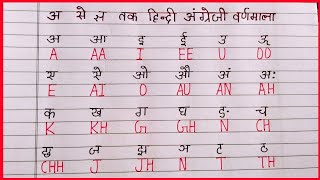 अ से ज्ञ तक हिन्दी अंग्रेजी वर्णमाला
अ आ इ ई उ ऊ
A AA I EE U OO
ए ऐ ओ औ अं अः
E AI O AU AN AH
क ख ग घ ङ च
K KH G GH N C
छ ज झ ञ ट ठ
CHH J JH N T TH